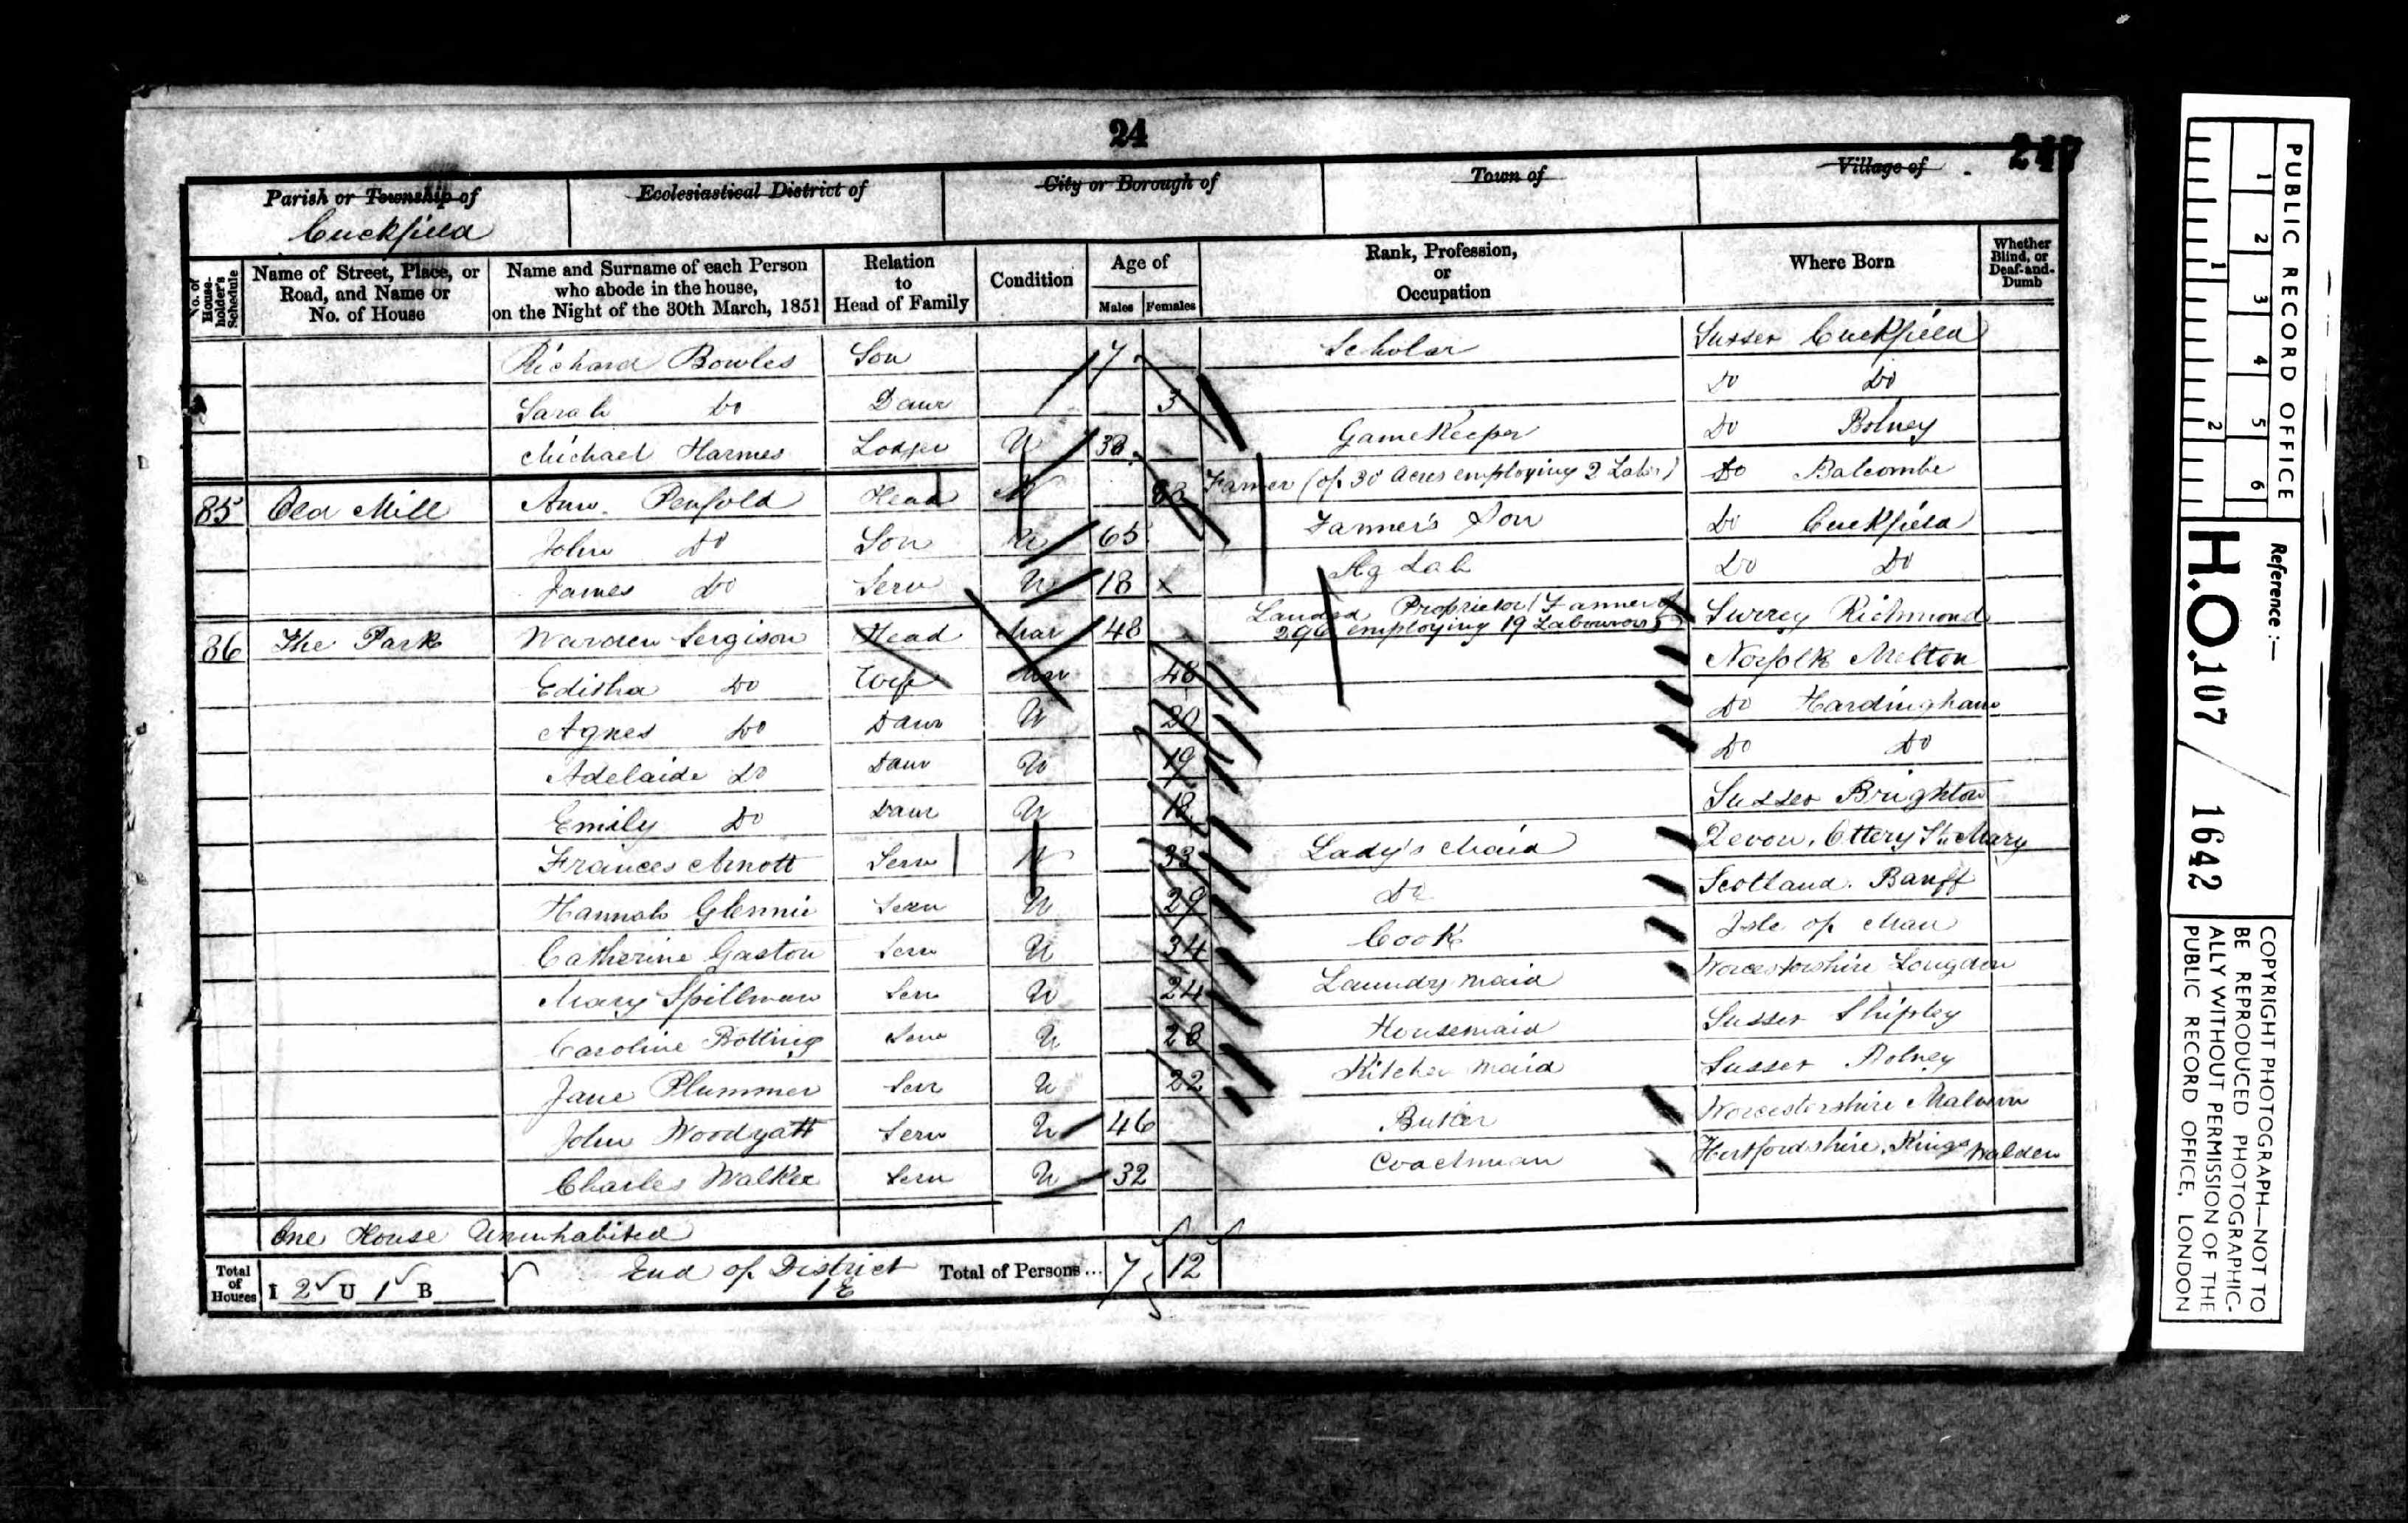 24
Parish or Township of
Ecclesiastical District of
City or Borough of
Town of
Village of
Cuckfield
No. of House-holder's Schedule
Name of Street, Place, or Road, and Name or No. of House
Name and Surname of each Person who abode in the house, on the Night of the 30th March, 1851
Relation to Head of Family
Condition
Age of
Males Females
Rank, Profession, or Occupation
Where Born
Whether Blind, or Deaf-and-Dumb
Richard Bowles Son 7 Scholar Sussex Cuckfield
Sarah Do Daur 3 Do Do
Michael Harmes Lodger U 38 GameKeeper Do Bolney
85 Old Mill Ann Penfold Head Farmer (of 30 Acres employing 2 Labrs) Do Balcombe
John Do Son U 65 Farmer's Son Do Cuckfield
James Do Serv U 18 Ag Lab Do Do
86 The Park Warden Sergison Head Mar 48 Landed Proprietor (Farmer of 296 employing 19 Labourers) Surrey Richmond
Editha Do Wife Mar 48 Norfolk Melton
Agnes Do Daur U 20 Do Hardingham
Adelaide Do Daur U 19 Do Do
Emily Do Daur U 18 Sussex Brighton
Frances Arnott Serv 33 Lady's Maid Devon. Ottery St. Mary
Hannah Glennie Serv U 29 Do Scotland. Banff
Catherine Gaston Serv U 34 Cook Isle of Man
Mary Spillman Serv U 24 Laundry maid Worcestershire Longdon
Caroline Botting Serv U 28 Housemaid Sussex Shipley
Jane Plummer Serv U 22 Kitchen maid Sussex Bolney
John Woodyatt Serv U 46 Butler Worcestershire Malvern
Charles Walker Serv U 32 Coachman Hertfordshire. Kings Walden
One House Uninhabited
Total of Houses I 2 U 1 B
End of District 1E
Total of Persons... 7 12
PUBLIC RECORD OFFICE
1 2 3 4 5 6
1 2
Reference:-
H.O. 107 / 1642
COPYRIGHT PHOTOGRAPH—NOT TO
BE REPRODUCED PHOTOGRAPHIC-
ALLY WITHOUT PERMISSION OF THE
PUBLIC RECORD OFFICE, LONDON